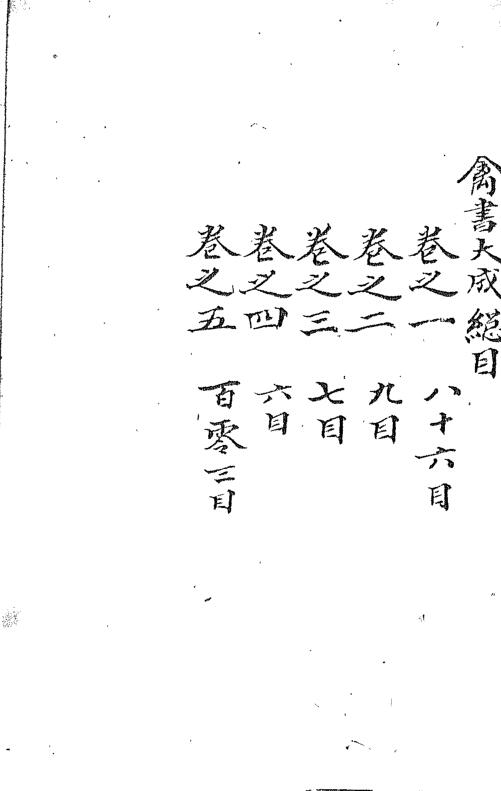 禽書大成緫目
卷之一 八十六目
卷之二 九目
卷之三 七目
卷之四 六目
卷之五 百零三目